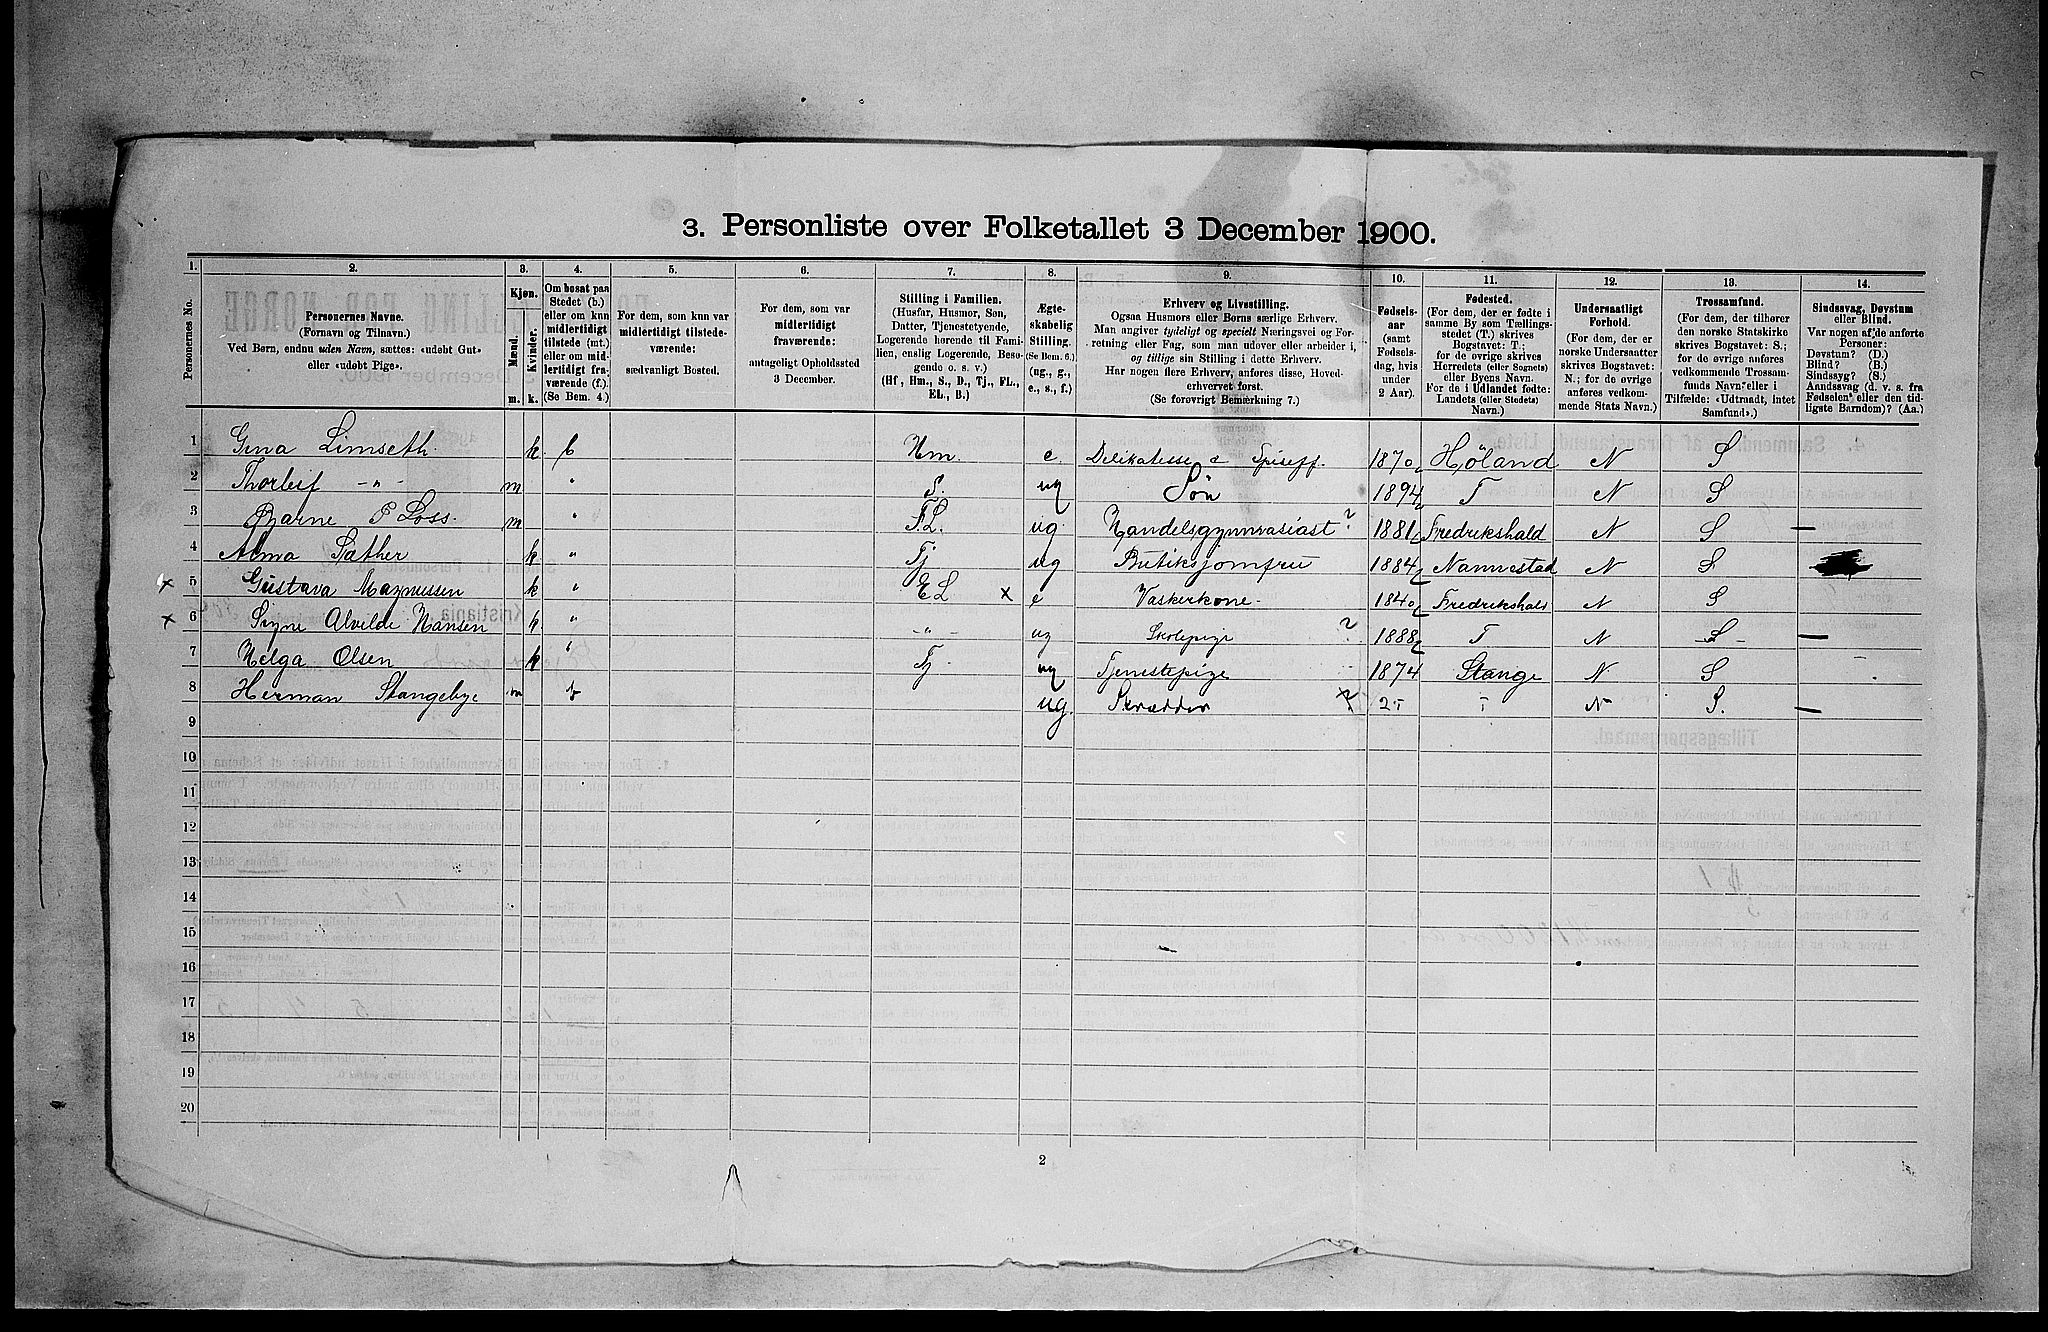 3. Personliste over Folketallet 3 December 1900.
1. 2. 3. 4. 5. 6. 7. 8. 9. 10. 11. 12. 13. 14.
Personernes No.
Personernes Navne.
(Fornavn og Tilnavn.)
Ved Børn, endnu uden Navn, sættes: «udøbt Gut»
eller «udøbt Pige».
Kjøn.
Mænd.
Kvinder.
m. k.
Om bosat paa
Stedet (b.)
eller om kun
midlertidigt
tilstede (mt.)
eller om mid-
lertidigt fra-
værende (f.).
(Se Bem. 4.)
For dem, som kun var
midlertidigt tilstede-
værende:
sædvanligt Bosted.
For dem, som var
midlertidigt
fraværende:
antageligt Opholdssted
3 December.
Stilling i Familien.
(Husfar, Husmor, Søn,
Datter, Tjenestetyende,
Logerende hørende til Fami-
lien, enslig Logerende, Besø-
gende o. s. v.)
(Hf., Hm., S., D., Tj., FL.,
EL., B.)
Ægte-
skabelig
Stilling.
(Se Bem. 6.)
(ug., g.,
e., s., f.)
Erhverv og Livsstilling.
Ogsaa Husmors eller Børns særlige Erhverv.
Man angiver tydeligt og specielt Næringsvei og For-
retning eller Fag, som man udøver eller arbeider i,
og tillige sin Stilling i dette Erhverv.
Har nogen flere Erhverv, anføres disse, Hoved-
erhvervet først.
(Se forøvrigt Bemærkning 7.)
Fødsels-
aar
(samt
Fødsels-
dag, hvis
under
2 Aar).
Fødested.
(For dem, der er fødte i
samme By som Tællings-
stedet (T.) skrives
Bogstavet: T.;
for de øvrige skrives
Herredets (eller Sognets)
eller Byens Navn.
For de i Udlandet fødte:
Landets (eller Stedets)
Navn.)
Undersaatligt
Forhold.
(For dem, der er
norske Undersaatter
skrives Bogstavet:
N.; for de øvrige
anføres vedkom-
mende Stats Navn.)
Trossamfund.
(For dem, der tilhører
den norske Statskirke
skrives Bogstavet: S.;
for de øvrige anføres
vedkommende Trossam-
funds Navn eller i
Tilfælde: «Udtraadt, intet
Samfund».)
Sindssvag, Døvstum
eller Blind.
Var nogen af de anførte
Personer:
Døvstum? (D.)
Blind? (B.)
Sindssyg? (S.)
Aandssvag (d. v. s. fra
Fødselen eller den tid-
ligste Barndom)? (Aa.)
1 Gina Limseth. k. b Hm. e. Delikatesse & Spiseff. 1870 Høland N S
2 Thorleif -"- m " S. ug Søn 1894 T N S
3 Bjarne P Loss. m " F.L. ug. Handelsgymnasiast ? 1881 Fredrikshald N S —
4 Alma Sæther k " Tj ug Butiksjomfru 1884 Nannestad N S
x 5 Gustava Magnussen k " EL x e Vaskerkone - 1840 Fredrikshald N S
x 6 Signe Alvilde Hansen k " -"- ug Skolepige ? 1888 T N S —
7 Helga Olsen k " Tj ug Tjenestepige 1874 Stange N S
8 Herman Stangebye m b ug. Skrædder ? T N S. —
9
10
11
12
13
14
15
16
17
18
19
20
2